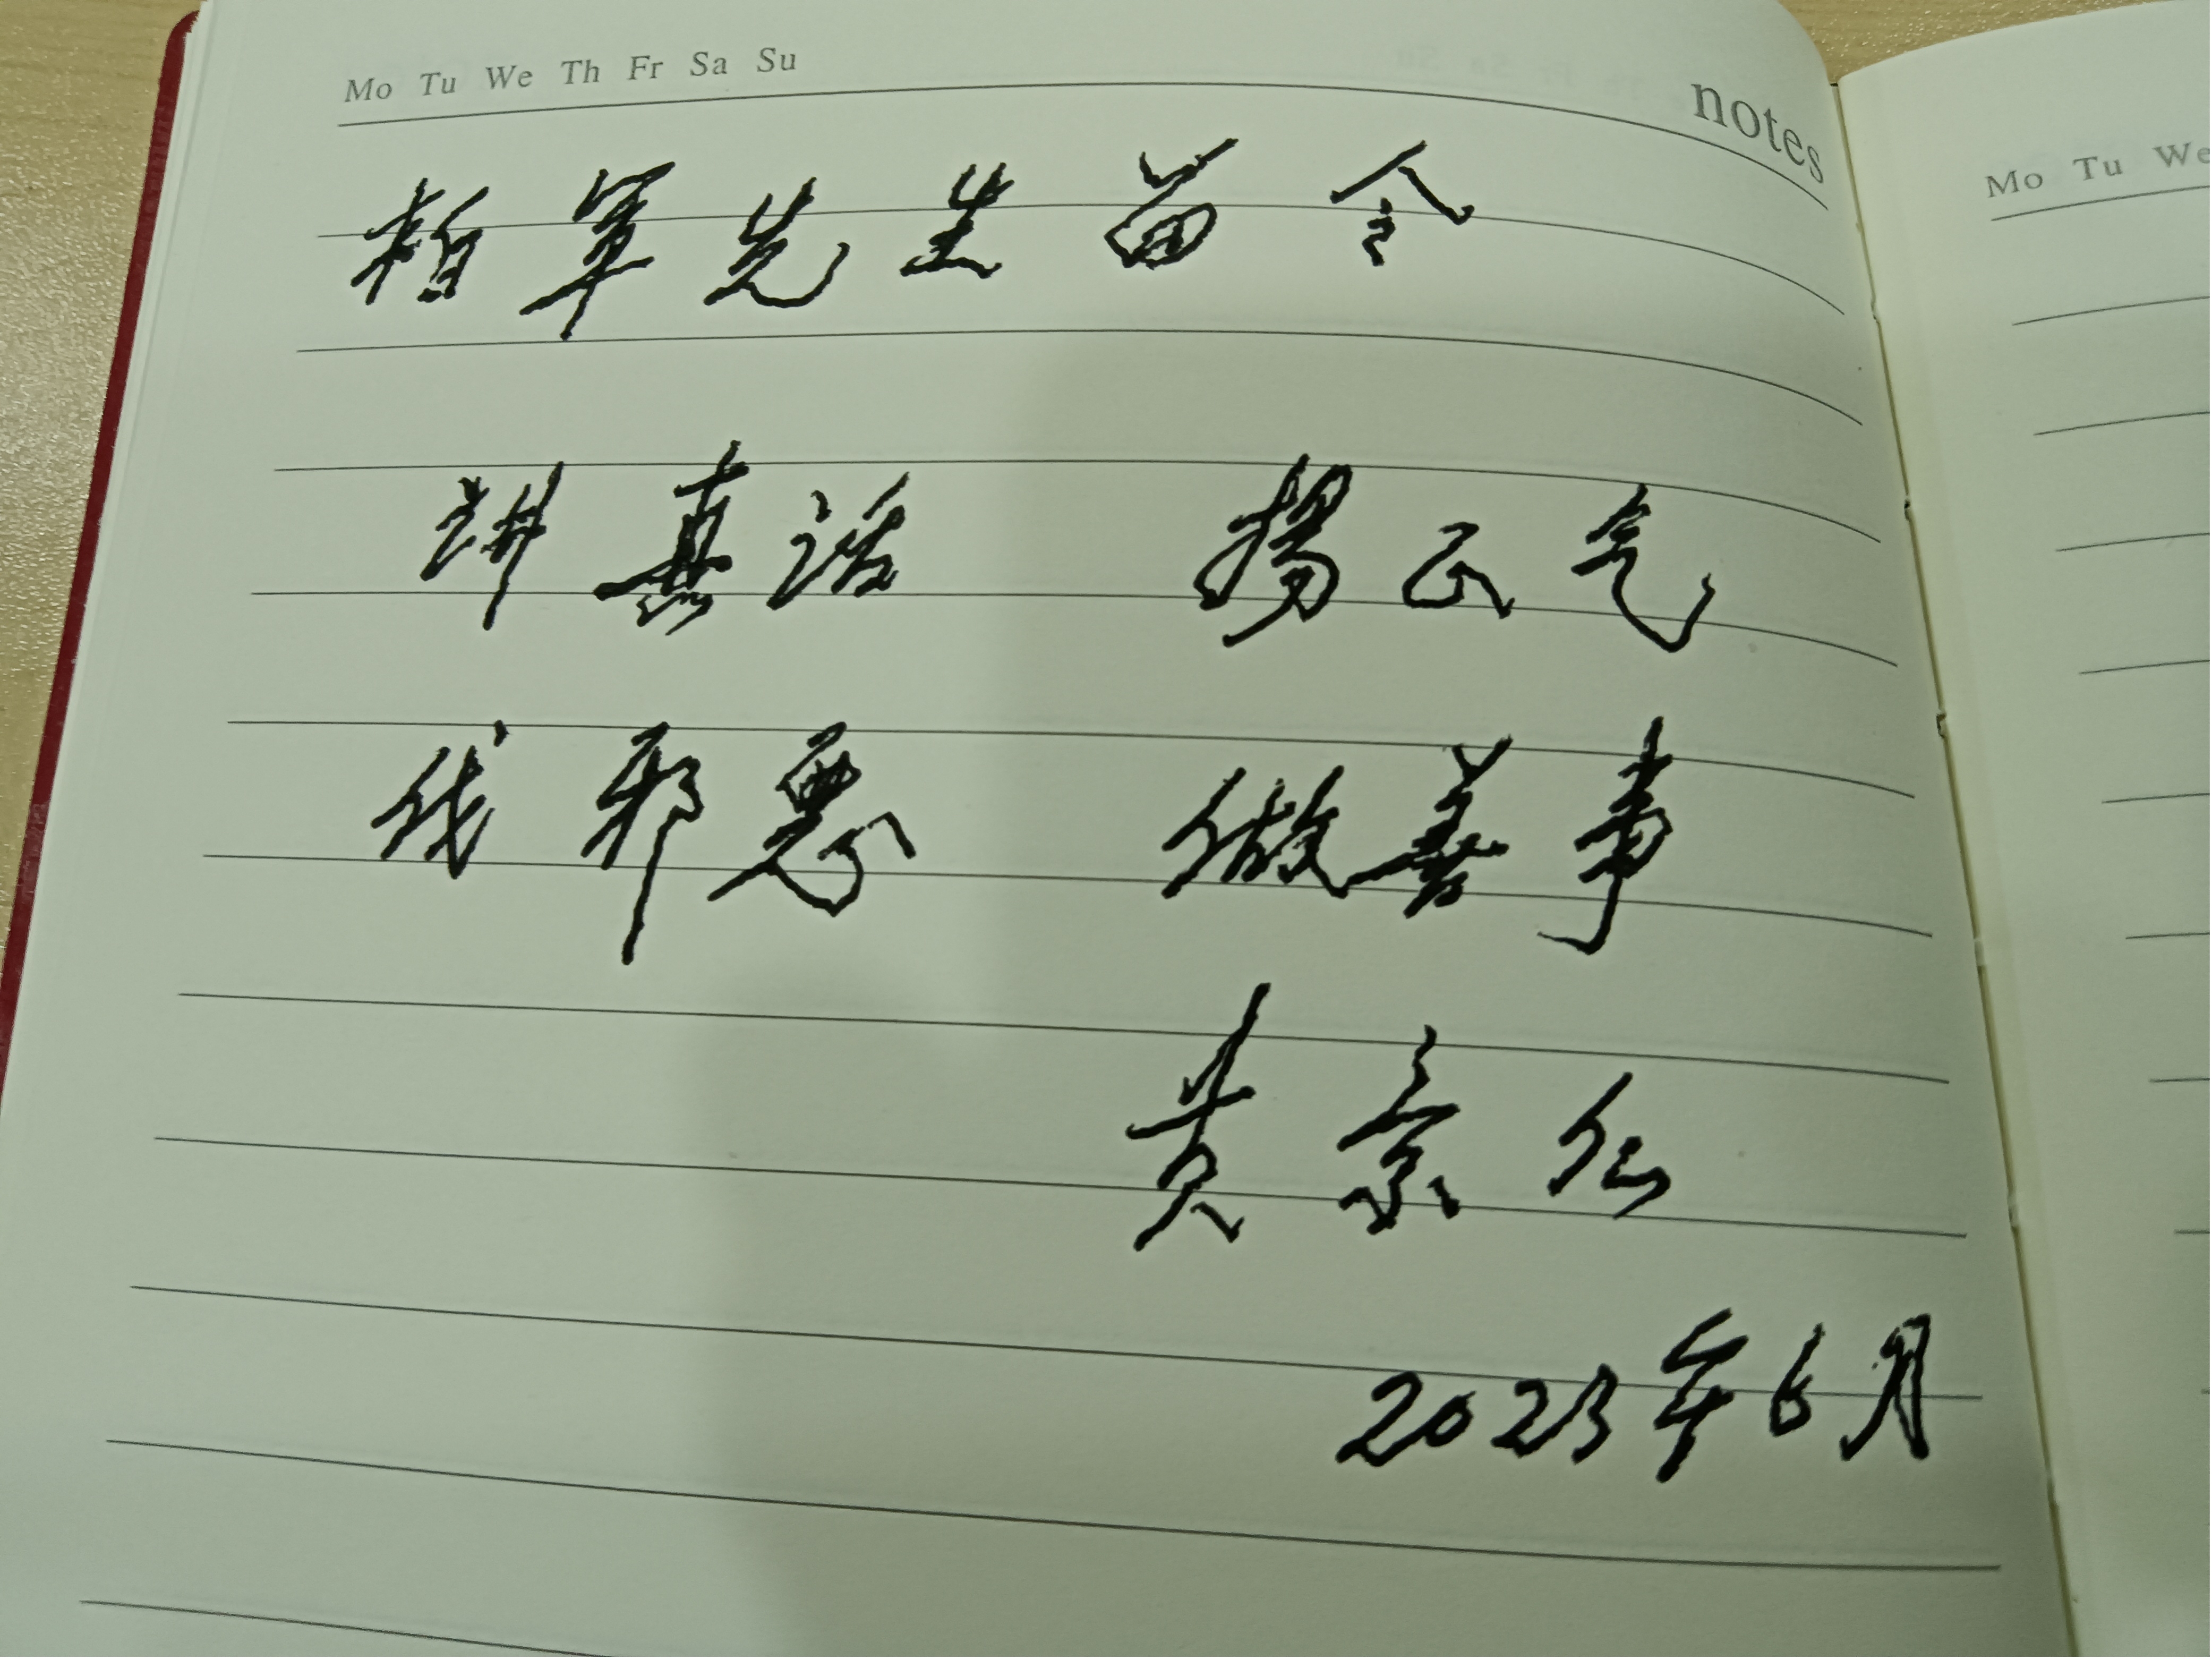 Mo Tu We Th Fr Sa Su
notes
柏军先生留念
讲真话 扬正气
伐邪恶 做善事
黄京仁
2023年6月
Mo Tu We